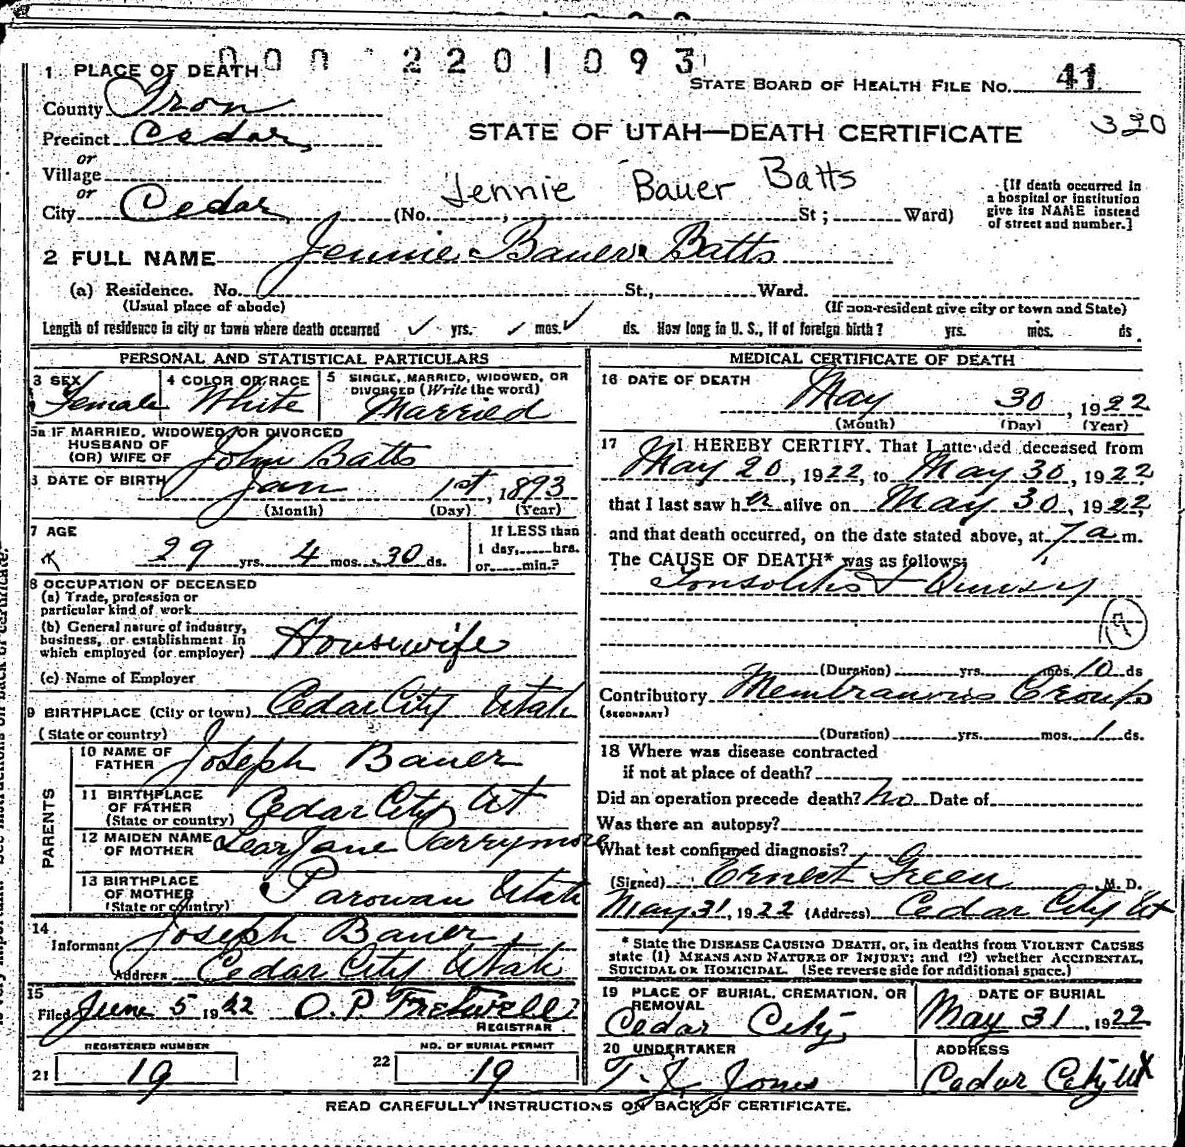 000 2201093
1 PLACE OF DEATH
STATE BOARD OF HEALTH FILE NO. 41
County Iron
Precinct Cedar
STATE OF UTAH—DEATH CERTIFICATE 320
or
Village
or
Jennie Bauer Batts
City Cedar (No. , St; Ward)
[If death occurred in
a hospital or institution
give its NAME instead
of street and number.]
2 FULL NAME Jennie Bauer Batts
(a) Residence. No. St., Ward.
(Usual place of abode) (If non-resident give city or town and State)
Length of residence in city or town where death occurred ✓ yrs. ✓ mos. ✓ ds. How long in U. S., if of foreign birth? yrs. mos. ds.
PERSONAL AND STATISTICAL PARTICULARS
3 SEX Female
4 COLOR OR RACE White
5 SINGLE, MARRIED, WIDOWED, OR
DIVORCED (Write the word)
Married
5a IF MARRIED, WIDOWED, OR DIVORCED
HUSBAND OF
(OR) WIFE OF John Batts
6 DATE OF BIRTH Jan 1st, 1893
(Month) (Day) (Year)
7 AGE
29 yrs. 4 mos. 30 ds.
If LESS than
1 day, hrs.
or min.?
8 OCCUPATION OF DECEASED
(a) Trade, profession or
particular kind of work
(b) General nature of industry,
business, or establishment in
which employed (or employer) Housewife
(c) Name of Employer
9 BIRTHPLACE (City or town) Cedar City Utah
(State or country)
PARENTS
10 NAME OF
FATHER Joseph Bauer
11 BIRTHPLACE
OF FATHER Cedar City Ut
(State or country)
12 MAIDEN NAME
OF MOTHER Jane
13 BIRTHPLACE
OF MOTHER Parowan Utah
(State or country)
14
Informant Joseph Bauer
Address Cedar City Utah
15
Filed June 5 1922 O. P. Fretwell
REGISTRAR
REGISTERED NUMBER
21 19
NO. OF BURIAL PERMIT
22 19
MEDICAL CERTIFICATE OF DEATH
16 DATE OF DEATH
May 30, 1922
(Month) (Day) (Year)
17 I HEREBY CERTIFY, That I attended deceased from
May 20, 1922, to May 30, 1922
that I last saw her alive on May 30, 1922,
and that death occurred, on the date stated above, at 7 a m.
The CAUSE OF DEATH* was as follows:
Tonsolitis + Quinsy
(19)
(Duration) yrs. mos. 10 ds
Contributory Membranous Croup
(SECONDARY)
(Duration) yrs. mos. 1 ds.
18 Where was disease contracted
if not at place of death?
Did an operation precede death? no Date of
Was there an autopsy?
What test confirmed diagnosis?
(Signed) Ernest Green M. D.
May 31, 1922 (Address) Cedar City Ut
* State the DISEASE CAUSING DEATH, or, in deaths from VIOLENT CAUSES
state (1) MEANS AND NATURE OF INJURY; and (2) whether ACCIDENTAL,
SUICIDAL OR HOMICIDAL. (See reverse side for additional space.)
19 PLACE OF BURIAL, CREMATION, OR
REMOVAL
Cedar City
DATE OF BURIAL
May 31, 1922
20 UNDERTAKER
T. J. Jones
ADDRESS
Cedar City Ut
READ CAREFULLY INSTRUCTIONS ON BACK OF CERTIFICATE.